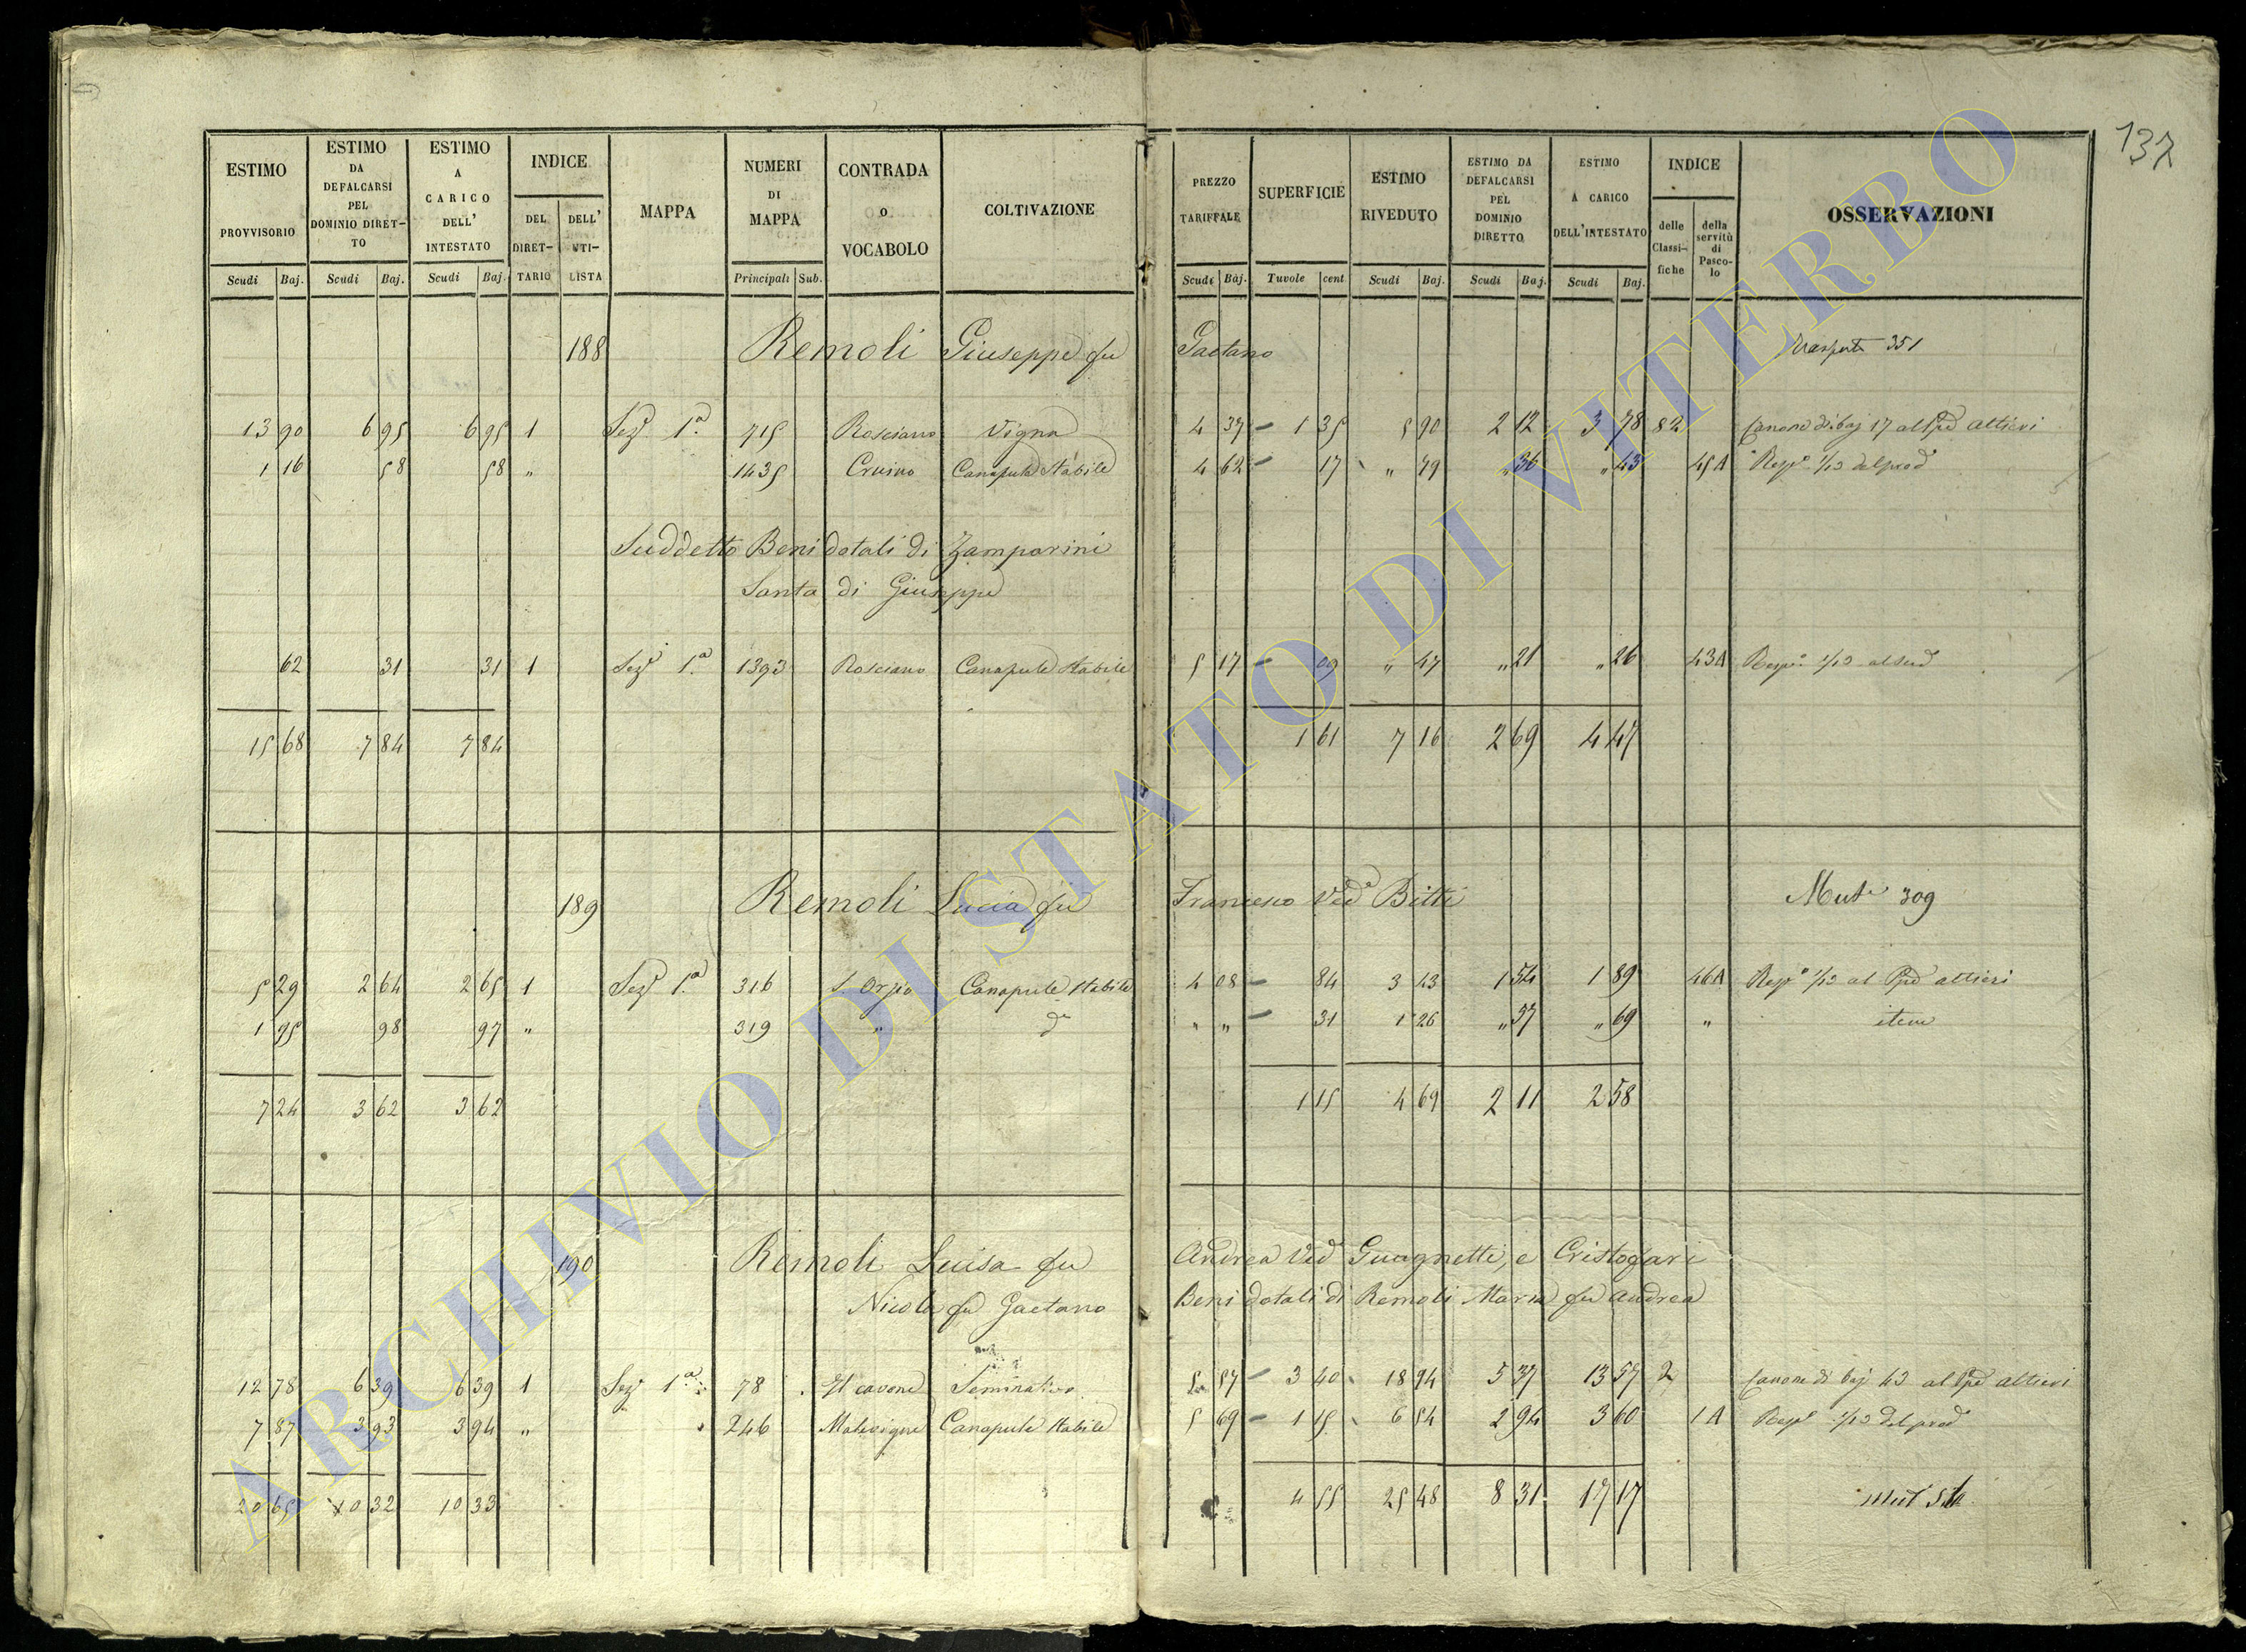 137
ESTIMO PROVVISORIO Scudi Baj.
ESTIMO DA DEFALCARSI PEL DOMINIO DIRETTO Scudi Baj.
ESTIMO A CARICO DELL' INTESTATO Scudi Baj.
INDICE DEL DIRETTARIO DELL' UTILISTA
MAPPA
NUMERI DI MAPPA Principali Sub.
CONTRADA O VOCABOLO
COLTIVAZIONE
PREZZO TARIFFALE Scudi Baj.
SUPERFICIE Tavole cent
ESTIMO RIVEDUTO Scudi Baj.
ESTIMO DA DEFALCARSI PEL DOMINIO DIRETTO Scudi Baj.
ESTIMO A CARICO DELL'INTESTATO Scudi Baj.
INDICE delle Classifiche della servitù di Pascolo
OSSERVAZIONI
188 Remoli Giuseppe fu Gaetano 351
13 90 6 95 6 95 1 Sez. 1ª 715 Rosciano Vigna 4 37 1 35 5 90 2 12 3 78 82 Canone di baj 17 al altieri
1 16 58 58 " 1435 Canapule Stabile 4 62 17 " 79 " 36 " 43 45A
Suddetto Beni dotali di Zamparini
Santa di Giuseppe
62 31 31 1 Sez. 1ª 1393 Rosciano Canapule Stabile 5 17 09 " 47 " 21 " 26 43A
15 68 7 84 7 84 1 61 7 16 2 69 4 47
189 Remoli Lucia fu Francesco Ved Bitti 309
5 29 2 64 2 65 1 Sez. 1ª 316 Canapule Stabile 4 08 84 3 43 1 54 1 89 46A altieri
1 95 98 97 " 319 " " " 31 1 26 " 57 " 69 " item
7 24 3 62 3 62 1 15 4 69 2 11 2 58
190 Remoli Luisa fu Andrea Ved Guagnetti, e Cristofari
Nicola fu Gaetano Beni dotali di Remoli Maria fu Andrea
12 78 6 39 6 39 1 Sez. 1ª 78 Il cavone Seminativo 5 57 3 40 18 94 5 37 13 57 2 Canone di baj 43 al altieri
7 87 3 93 3 94 " 246 Malevigne Canapule Stabile 5 69 1 15 6 54 2 94 3 60 1A
20 65 10 32 10 33 4 55 25 48 8 31 17 17
ARCHIVIO DI STATO DI VITERBO